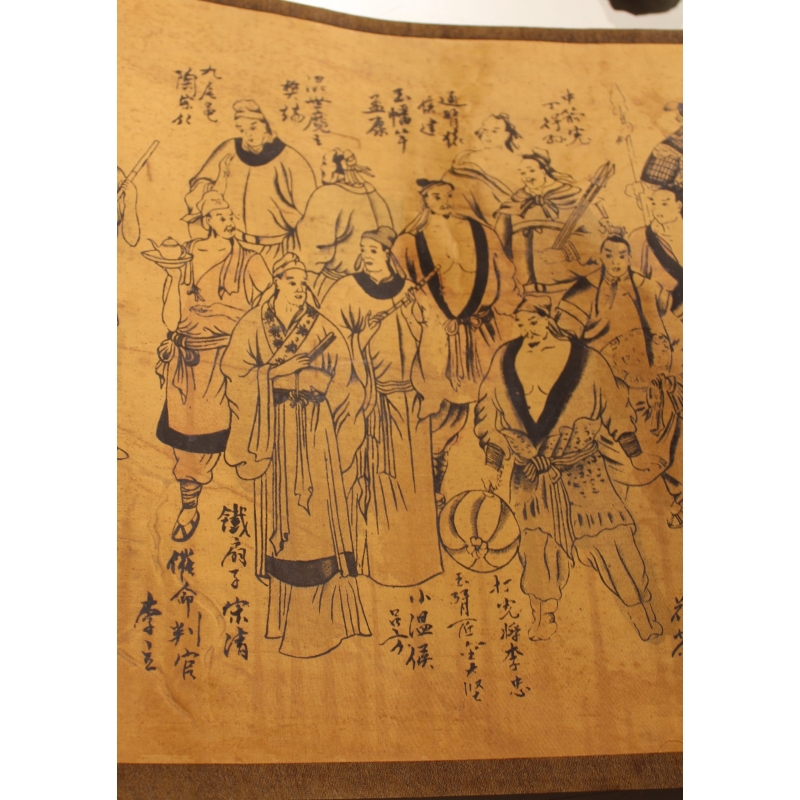 中箭虎
丁得孙
通臂猿
侯建
玉幡竿
孟康
混世魔王
樊瑞
九尾亀
陶宗旺
打虎將李忠
玉臂匠金大坚
小温侯
吕方
鐵扇子宋清
催命判官
李立